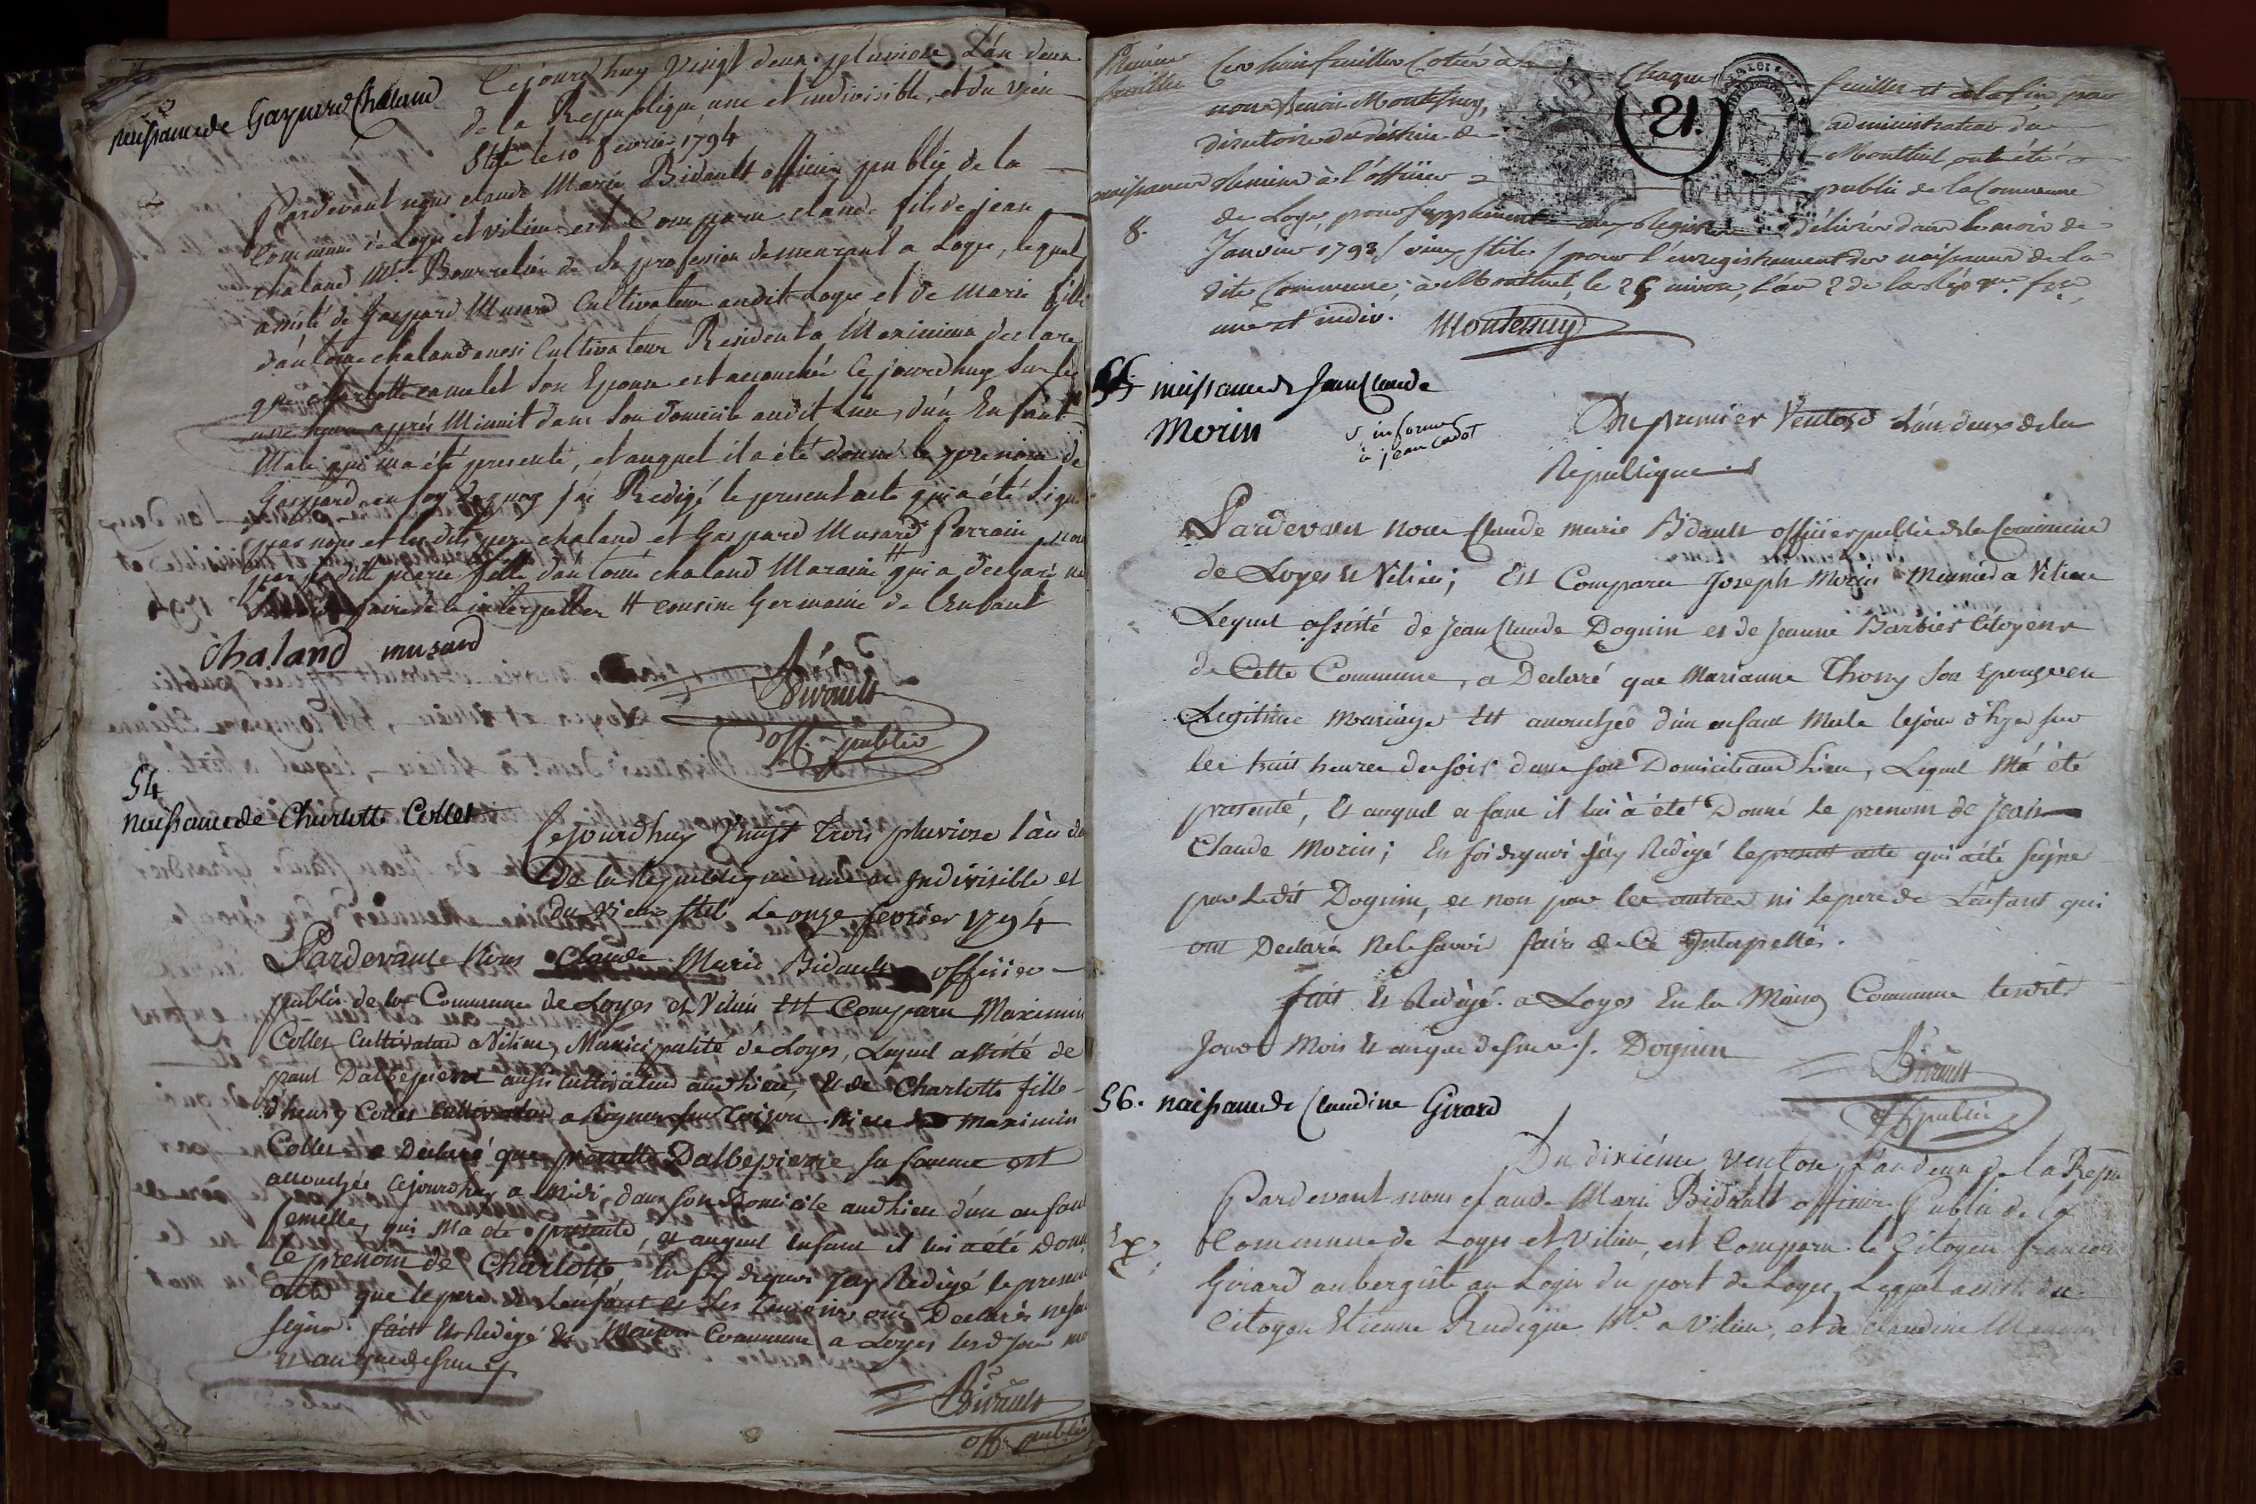 naissance de Gaspard Chaland
Cejourdhuy vingt deux pluviose L'an deux
de la Republique une et indivisible, et du vieu
Stile le 10 fevrier 1794
Pardevant nous claude Marie Bidault officier public de la
Commune de Loye et vilieu est Comparu claude fils de jean
chaland Md. Bourrelier de sa profession demeurant a Loye, lequel
assisté de Gaspard Musard Cultivateur audit Loye et de Marie fille
d'antoine chaland aussi Cultivateur Resident a Maximieu declare
que charlotte camelet son Epouse est accouchée Cejourdhuy sur les
une heure après Minuit dans son domicile audit Lieu, d'un Enfant
Male qui m'a été presenté, et auquel il a été donné le prenom de
Gaspard en foy de quoy j'ai Redigé le present acte qui a été signé
par nous et les dits pere chaland et Gaspard Musard Parrain, non
par la ditte Marie fille d'antoine chaland Maraine # qui a declaré ne
faire de ce interpellée # cousine Germaine de L'Enfant
chaland musard
Bidault
off. public
54
naissance de Charlotte Collet
Cejourdhuy Vingt trois pluviose l'an du
de la Republique une et Indivisible et
du vieux stil Le onze fevrier 1794
Pardevant Nous Claude Marie Bidault officier
public de la Commune de Loyes et Vilieu Est Comparu Maximin
Collet Cultivateur a Vilieu, Municipalité de Loyes, Lequel assisté de
paul Dalbepierre aussi cultivateur aud. Lieu, Et de Charlotte fille
d'heny Collet Cultivateur a Niece de Maximin
Collet a Declaré que pierrette Dalbepierre sa femme est
accouchée Cejourdhuy a Midi, dans son Domicile aud lieu d'un enfant
femelle, qui M'a été presenté, et auquel Enfant il lui a été Donné
le prenom de Charlotte En foy dequoi Jay Redigé le present
acte que le pere de L'enfant et Les temoins ont Declarés ne savoir
signer. fait Et Redigé En Maison Commune a Loyes lesd Jour mois
et an que dessus.
Bidault
off. public
Premier feuillet
Ces huit feuillets Cotés à Chaque feuillet et à la fin, par
nous Benoit Montessuy, administrateur du
directoire du district de Montluel ont été
naissances remis à l'officier public de la Commune
8.
de Loye, pour supplement aux Registres délivrés dans le mois de
Janvier 1793 / vieux stile / pour l'enregistrement des naissances de la
dite Commune, à Montluel, le 25 nivose, l'an 2 de la Rép.que fse
une et indiv. Montessuy
21
55 naissance de Jean Claude
Morin
s'informer
à jean cadot
Du premier Ventose L'an deux de la
Republique
Pardevant nous Claude marie Bidault officier public de la Commune
de Loyes et Vilieu; Est Comparu Joseph Morin Meunier a Vilieu
Lequel assisté de Jean Claude Doguin et de Jeanne Barbier Citoyens
de Cette Commune, a Declaré que Marianne Thony son Epouse en
Legitime Mariage Est accouchée d'un enfant Male le jour d'hyer sur
les huit heures du soir dans son Domicile aud Lieu, Lequel M'a été
presenté, Et auquel enfant il lui à été Donné le prenom de Jean
Claude Morin; En foi dequoi J'ay Redigé le present acte qui a été signé
par Ledit Doguin, et non par les autres ni le pere de L'enfant qui
ont Declaré Ne le savoir faire de Ce Interpellés.
fait Et Redigé a Loyes En la Maison Commune lesdits
Jour Mois et an que dessus. Doguin
Bidault
off public
56. naissance de Claudine Girard
Du dixiéme Ventose, L'an deux de la Repu
Pardevant nous claude Marie Bidault officier Public de la
Commune de Loyes et Vilieu, est Comparu le Citoyen francois
Girard aubergiste au Logis du port de Loyes, Lequel assisté du
Citoyen Etienne Rudigue Md a Vilieu, et de Claudine